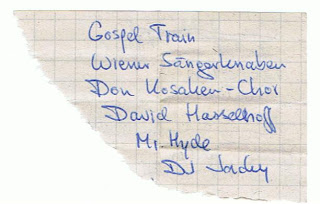 Gospel Train
Wiener Sängerknaben
Don Kosaken-Chor
David Hasselhoff
Mr Hyde
DJ